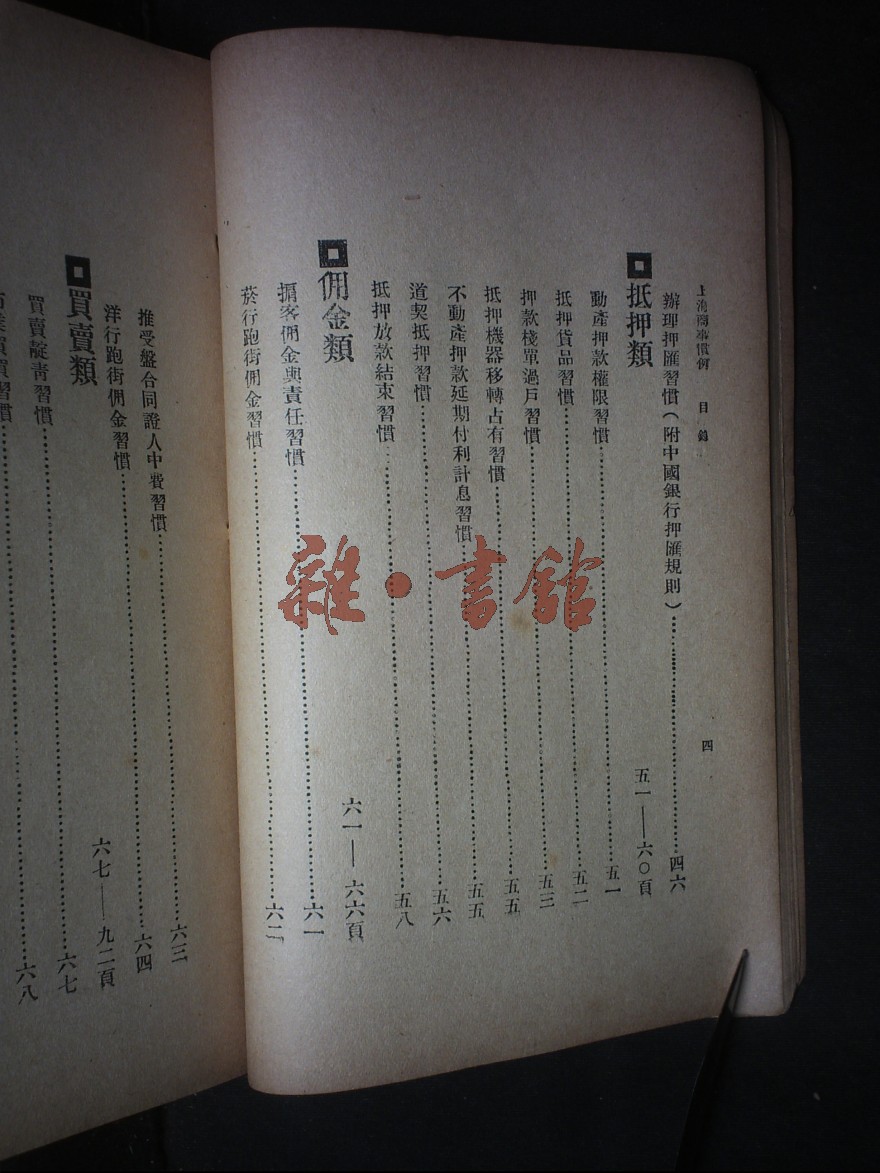 上海商事慣例　目錄　四
辦理押匯習慣（附中國銀行押匯規則）……四六
抵押類　五一——六〇頁
動產押款權限習慣……五一
抵押貨品習慣……五二
押款棧單過戶習慣……五三
抵押機器移轉占有習慣……五五
不動產押款延期付利計息習慣……五五
道契抵押習慣……五六
抵押放款結束習慣……五八
佣金類　六一——六六頁
掮客佣金與責任習慣……六一
菸行跑街佣金習慣……六二
推受盤合同證人中費習慣……六三
洋行跑街佣金習慣……六四
買賣類　六七——九二頁
買賣靛青習慣……六七
買賣習慣……六八
雜·書館